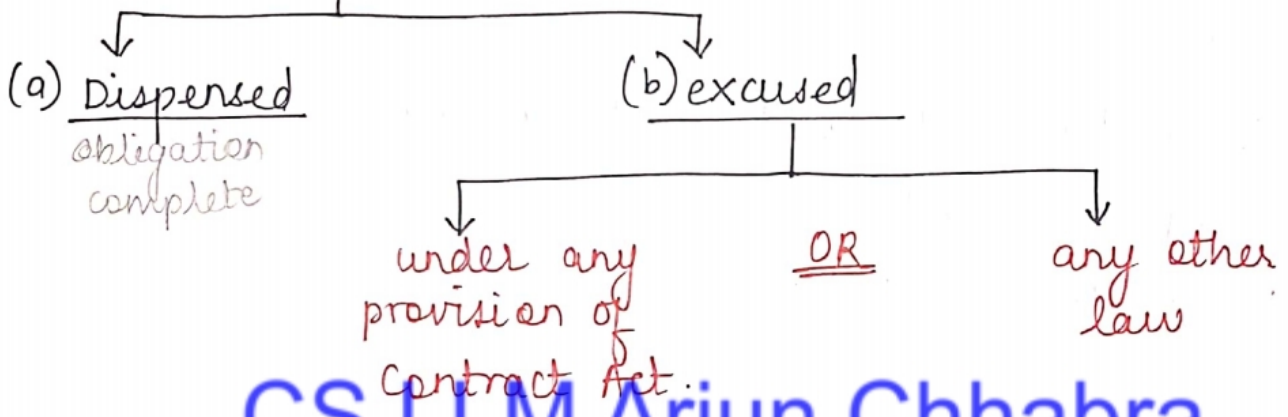 (a) Dispensed
(b) excused
obligation
complete
under any
provision of
Contract Act.
OR
any other
law
CS LLM Arjun Chhabra